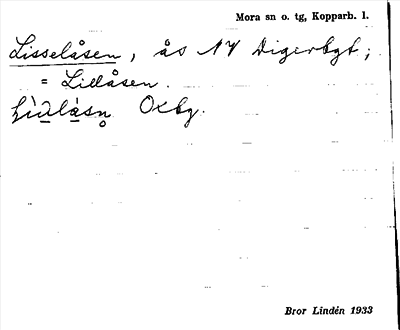 Mora sn o. tg, Kopparb. l.
Lisselåsen, ås NV Digerbgt;
= Lillåsen.
Oxbg.
Bror Lindén 1933